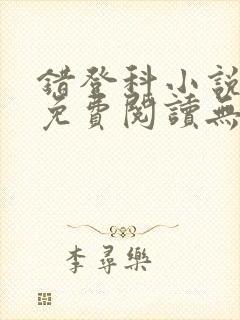 錯登科小說
免費閱讀無
李尋樂